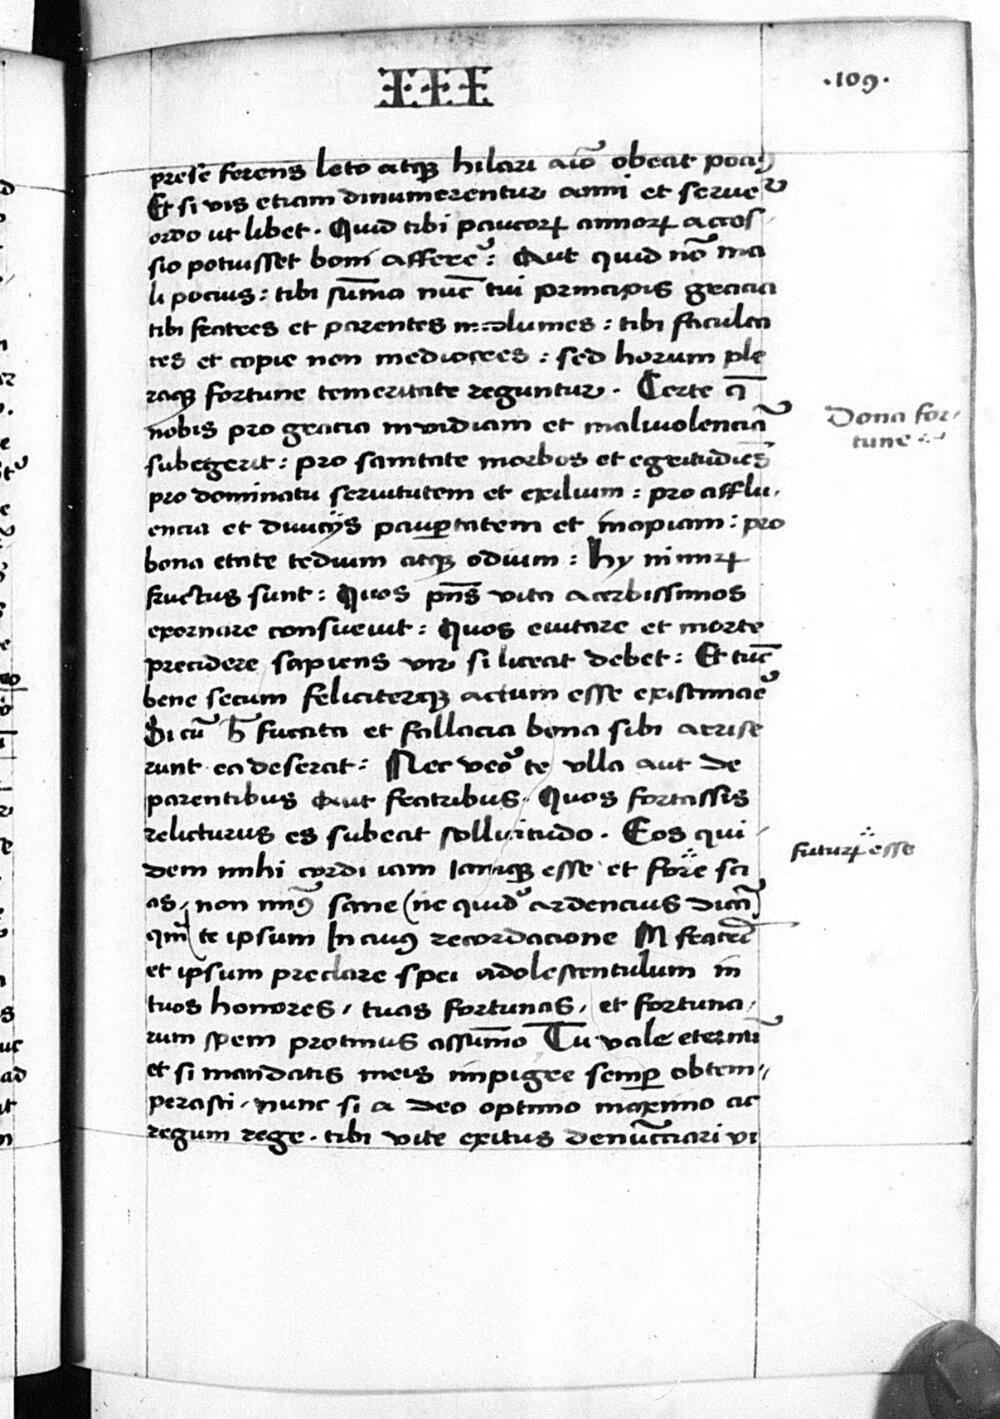 IIII
·109·
prese ferens leto atqꝫ hilari aīo obeat pocꝰ
Et si vis etiam dinumerentur anni et serue
ordo ut libet · Quid tibi paucorꝝ annorꝝ acces
sio potuisset boni afferre : Aut quid nō ma
li pocius : tibi sūma nūc tui principis gracia
tibi fratres et parentes incolumes : tibi faculta
tes et copie non mediocres : sed horum ple
raqꝫ fortune temeritate reguntur · Certe
nobis pro gracia invidiam et malivolenciā
subegerit : pro sanitate morbos et egritudies̄
pro dominatu servitutem et exilium : pro afflu,
encia et diviciis paup̄tatem et inopiam : pro
bona etate tedium atqꝫ odium : Hy nimirꝝ
fructus sunt : Quos pn̄s vita acerbissimos
exornare consuevit : Quos evitare et morte
precidere sapiens vir si liceat debet : Et tūc
bene secum feliciterqꝫ actum esse existimare
Si cū h̄ fucata et fallacia bona sibi arrise
runt ea deserat : Nec vero te ulla aut de
parentibus Aut fratribus · Quos fortassis
relicturus es subeat sollicitudo · Eos qui
dem mihi cordi iam iamqꝫ esse et fore sci
as, non minꝰ sane (ne quid ardencius dicā)
qm̄ te ipsum In cuiꝰ recordacione M fratrē
et ipsum preclare spei adolescentulum in
tuos honores, tuas fortunas, et fortuna,
rum spem protinus assūmo Tu vale eternū
et si mandatis meis impigre semꝑ obtem,
perasti, nunc si a deo optimo maximo ac
regum rege · tibi vite exitus denūcciari vi
Dona for,
tune
futurꝝ esse